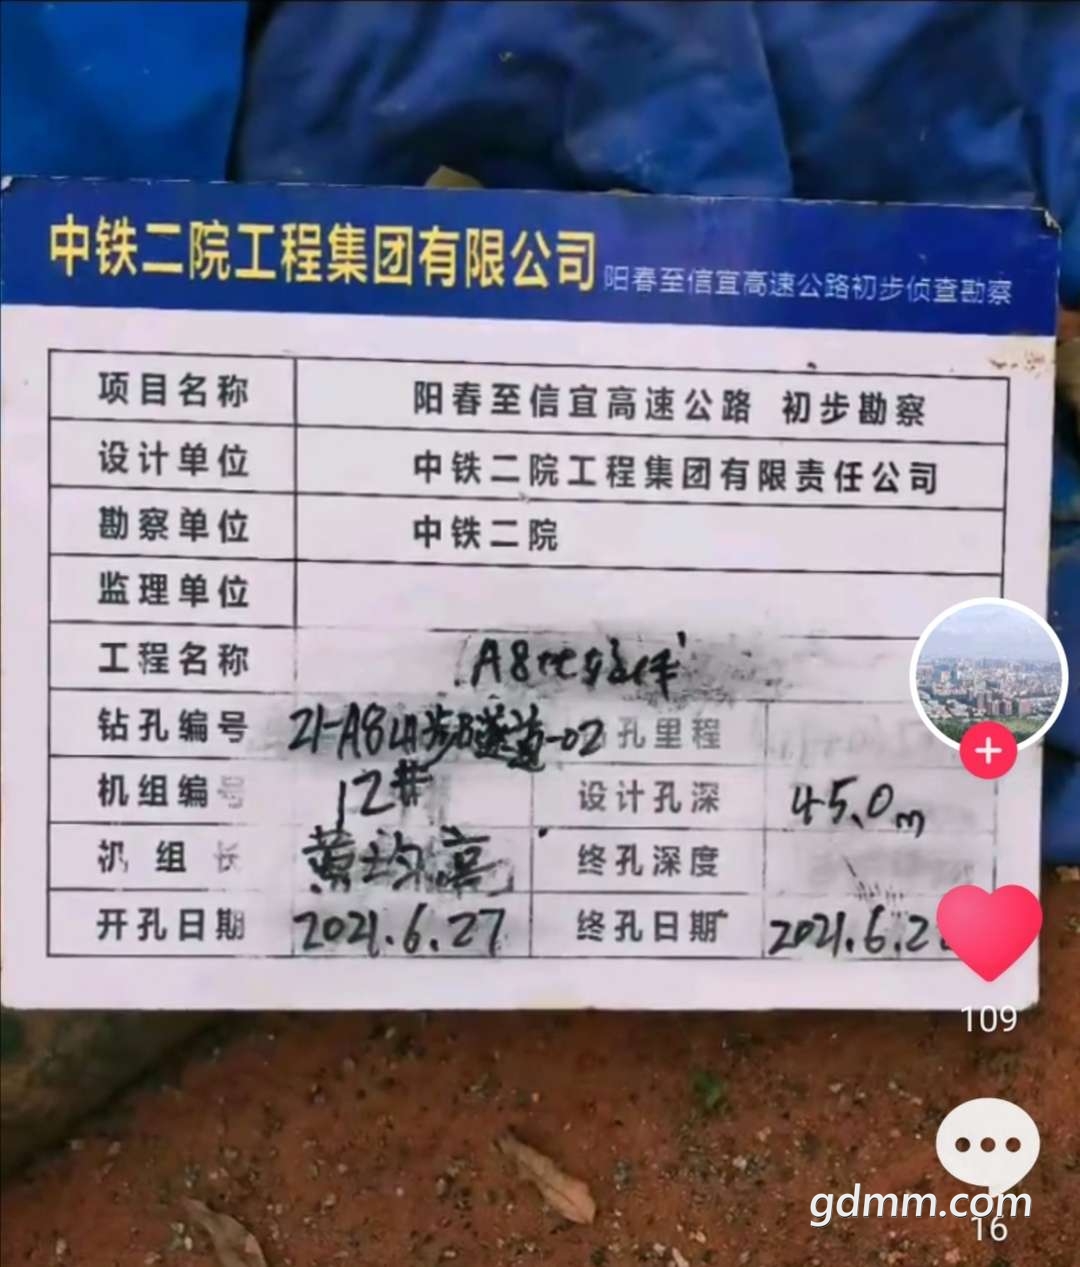 中铁二院工程集团有限公司 阳春至信宜高速公路初步侦查勘察
项目名称 阳春至信宜高速公路 初步勘察
设计单位 中铁二院工程集团有限责任公司
勘察单位 中铁二院
监理单位
工程名称 A8
钻孔编号 21-A8 隧道-02 孔里程
机组编号 12# 设计孔深 45.0m
机组长 黄均亮 终孔深度
开孔日期 2021.6.27 终孔日期 2021.6.2
109
gdmm.com
16